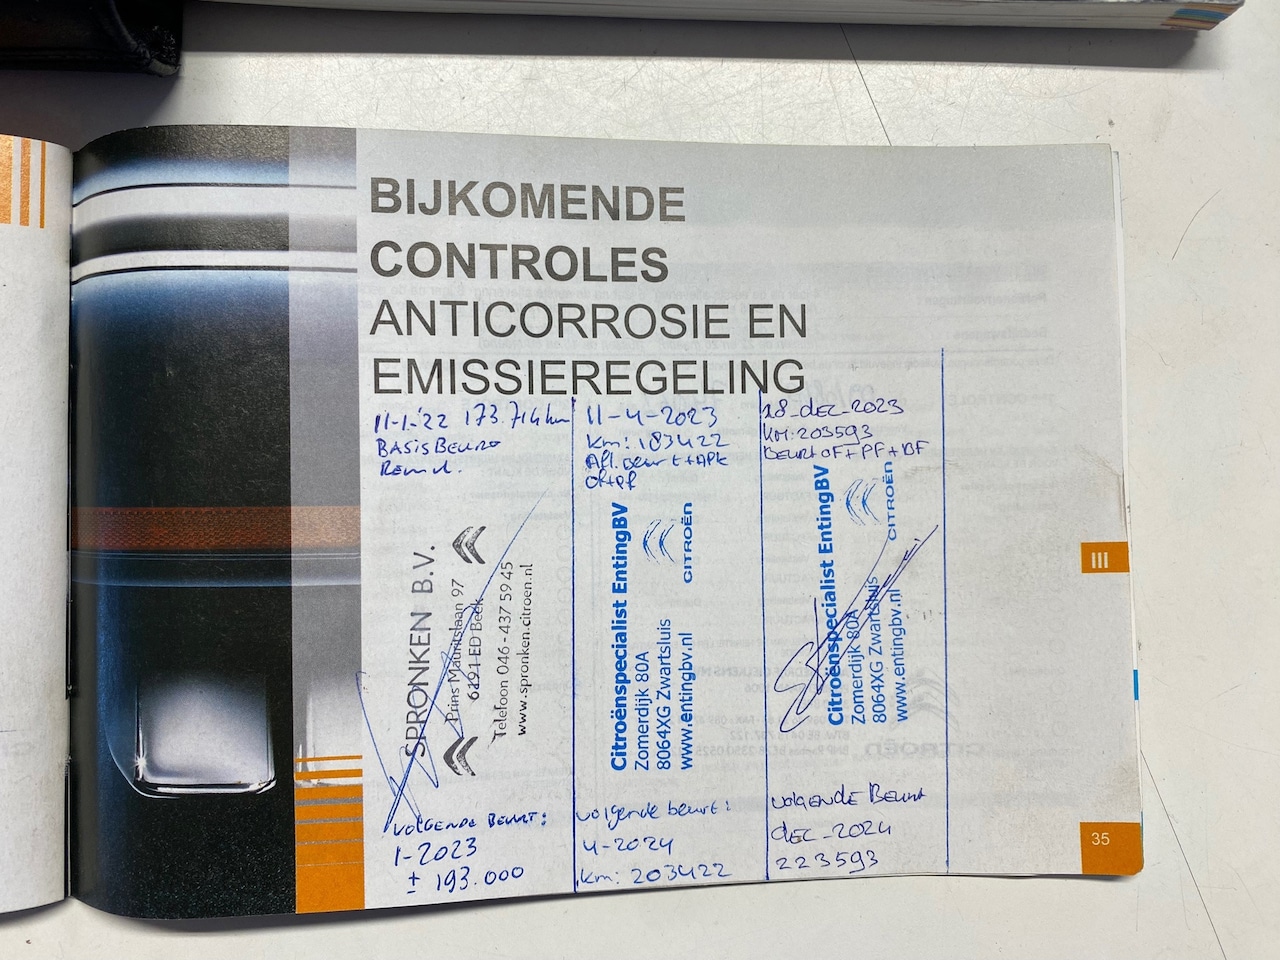 BIJKOMENDE
CONTROLES
ANTICORROSIE EN
EMISSIEREGELING
11-1-'22 173.714 km
BASISBEURT
SPRONKEN B.V.
Prins Mauritslaan 97
6191 ED Beek
Telefoon 046 - 437 59 45
www.spronken.citroen.nl
VOLGENDE BEURT:
1-2023
± 193.000
11-4-2023
km: 183422
Afl. beurt + APK
OF+PF
Citroënspecialist EntingBV
Zomerdijk 80A
8064XG Zwartsluis
www.entingbv.nl
CITROËN
volgende beurt:
4-2024
km: 203422
28-DEC-2023
KM: 203593
BEURT OF + PF + BF
Citroënspecialist EntingBV
Zomerdijk 80A
8064XG Zwartsluis
www.entingbv.nl
CITROËN
volgende Beurt
dec-2024
223593
III
35